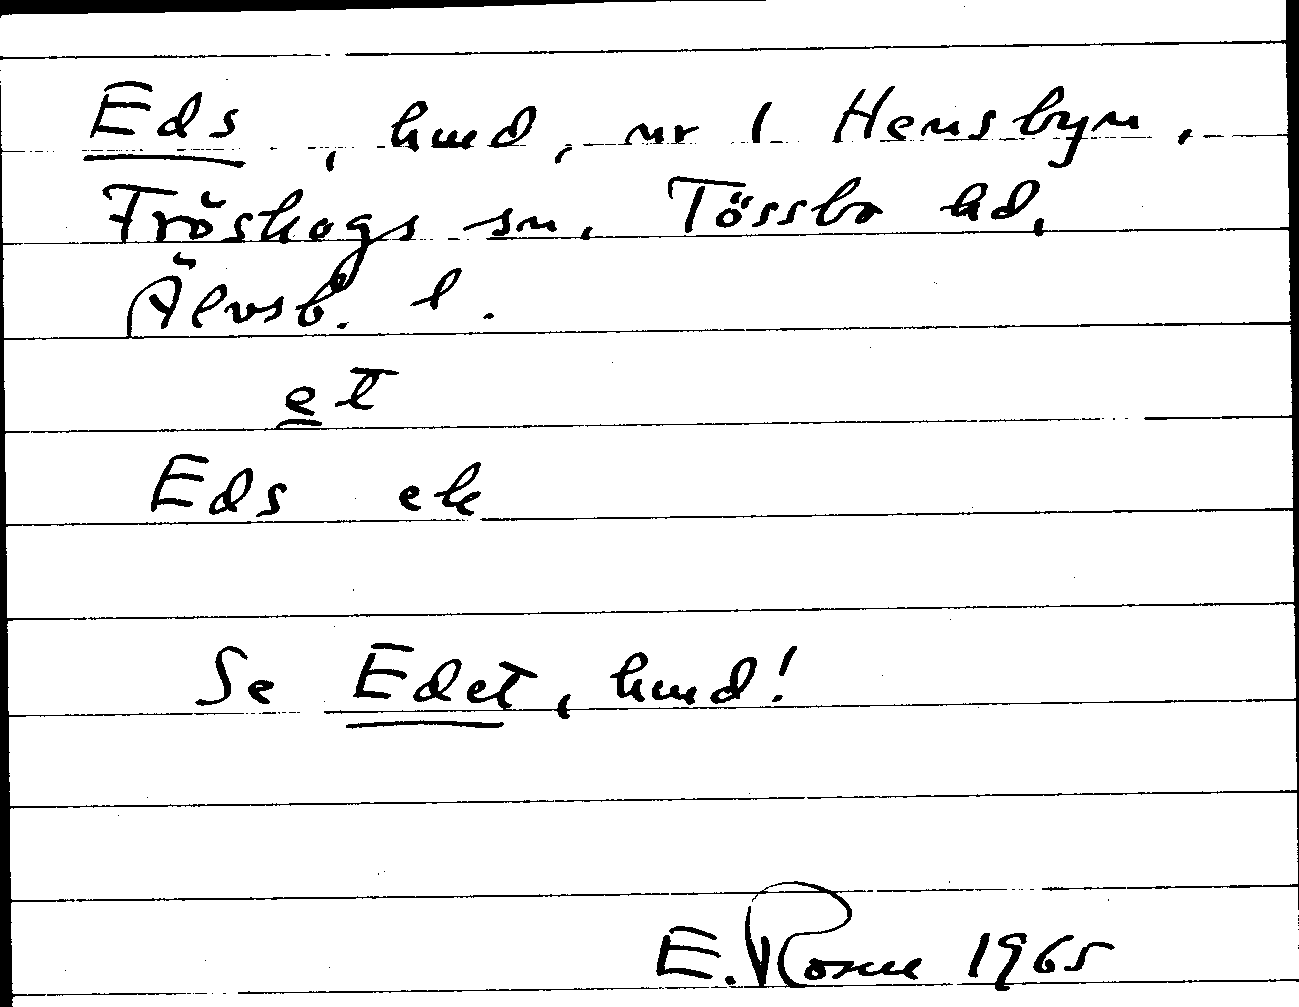 Eds, hmd, nr 1 Hensbyn,
Fröskogs sn, Tössbo hd,
Älvsb. l.
et
Eds ek
Se Edet, hmd!
E. Rosne 1965